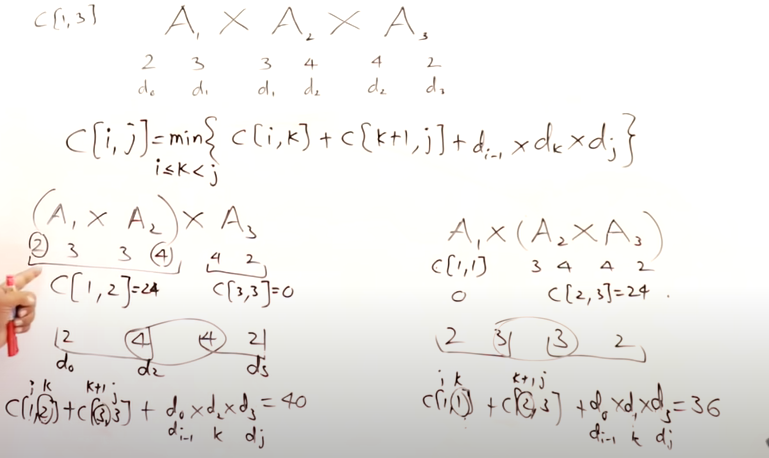 C[1,3]
A₁ × A₂ × A₃
2 3 3 4 4 2
d₀ d₁ d₁ d₂ d₂ d₃
C[i,j]=min{ C[i,k] + C[k+1,j] + dᵢ₋₁ × dₖ × dⱼ}
i≤k<j
(A₁ × A₂) × A₃
2 3 3 4 4 2
C[1,2]=24 C[3,3]=0
2 4 4 2
d₀ d₂ d₃
i k k+1 j
C[1,2]+C[3,3] + d₀×d₂×d₃=40
dᵢ₋₁ k dⱼ
A₁×(A₂×A₃)
C[1,1] 3 4 4 2
0 C[2,3]=24
2 3 3 2
i k k+1 j
C[1,1] + C[2,3] + d₀×d₁×d₃=36
dᵢ₋₁ k dⱼ